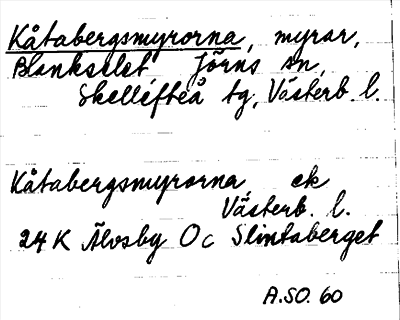 Kåtabergsmyrorna, myrar,
Blankselet Jörns sn,
Skellefteå tg, Västerb. l.
Kåtabergsmyrorna, ek
Västerb. l.
24 K Älvsby Oc Slintaberget
A.SO. 60